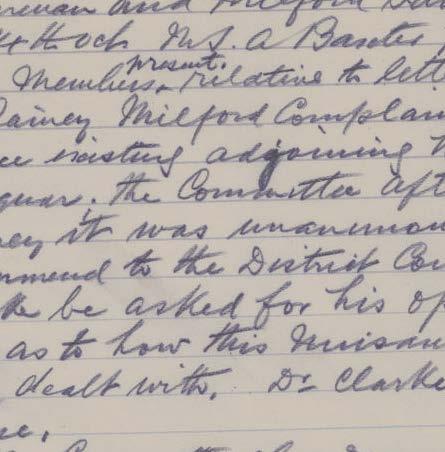 and Milford
4th Oct Mr J. A Baxter
Members present. relative to lett
Rainey Milford Complain
ce existing adjoining t
quar. the Committee aft
ey it was unanimou
ommend to the District Cou
ke be asked for his op
as to how this Nuisan
dealt with. Dr Clarke
ne.